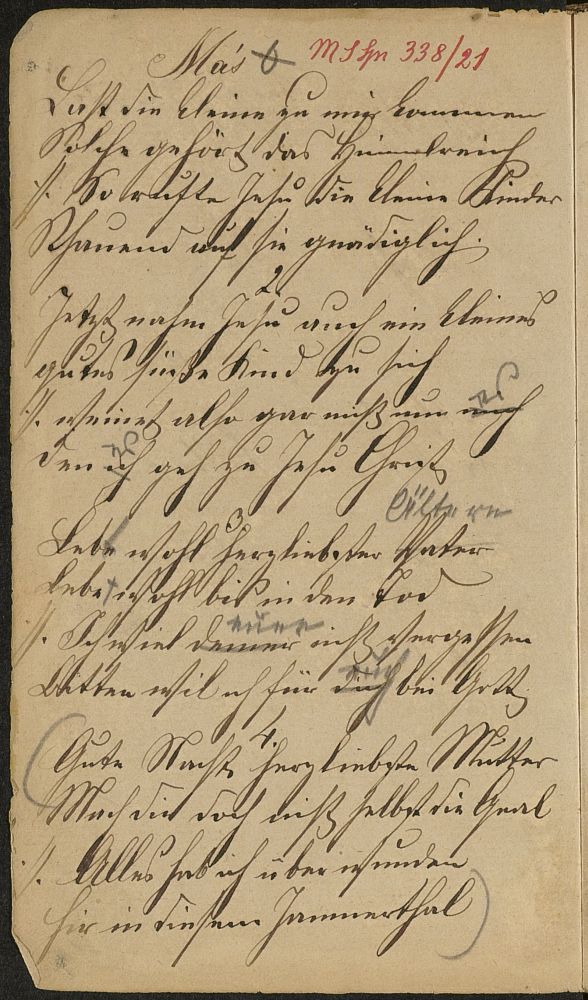 Más 6 MSHn 338/21
Last die kleine zu mir kommen
Solche gehört das Himmelreich
//. So rufte Jesu die kleine Kinder
Schauend auf sie gnädiglich.
2
Jetzt nahm Jesu auch ein kleines
gutes süsse Kind zu sich
//. weinet also gar nicht um mich es
den ich es geh zu Jesu Christ
3 Ältern
Lebe wohl herzliebster Vater
Lebe wohl bis in den Tod
//. Ich wiel deiner eurer nicht vergessen
Bitten wil ich für dich euch bei Gott
4.
(Gute Nacht herzliebste Mutter
Mach dir doch nicht selbst die Qual
//. Alles hab ich überwunden
hir in diesem Jammerthal)